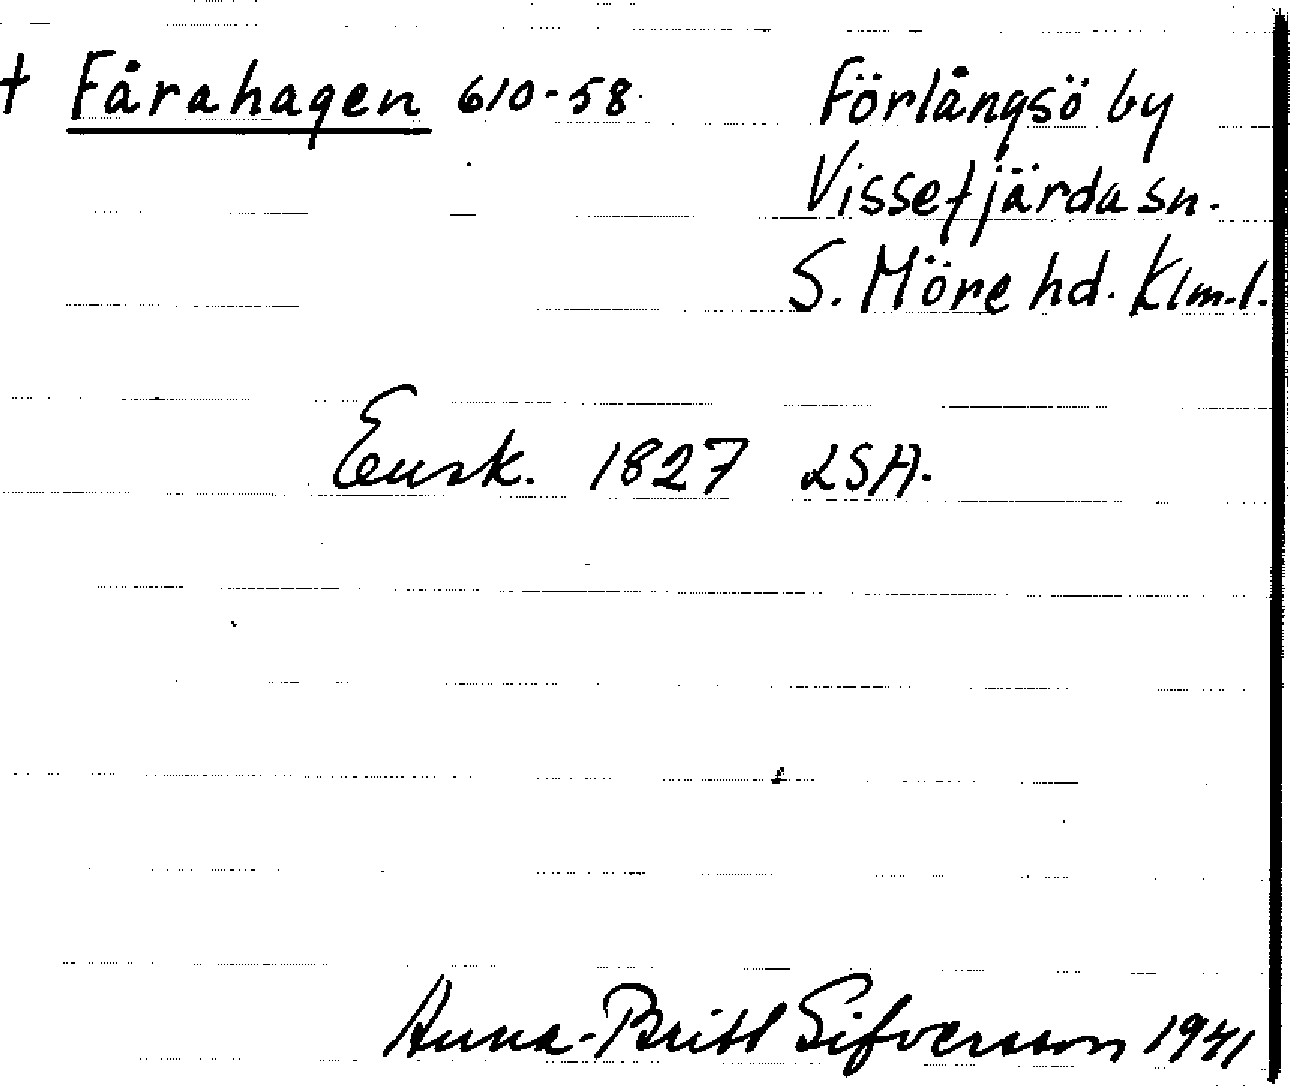 † Fårahagen 610-58 Förlångsö by
Vissefjärda sn.
S. Möre hd. Klm.l.
Ensk. 1827 LSA.
Anna-Britt Sifversson 1941